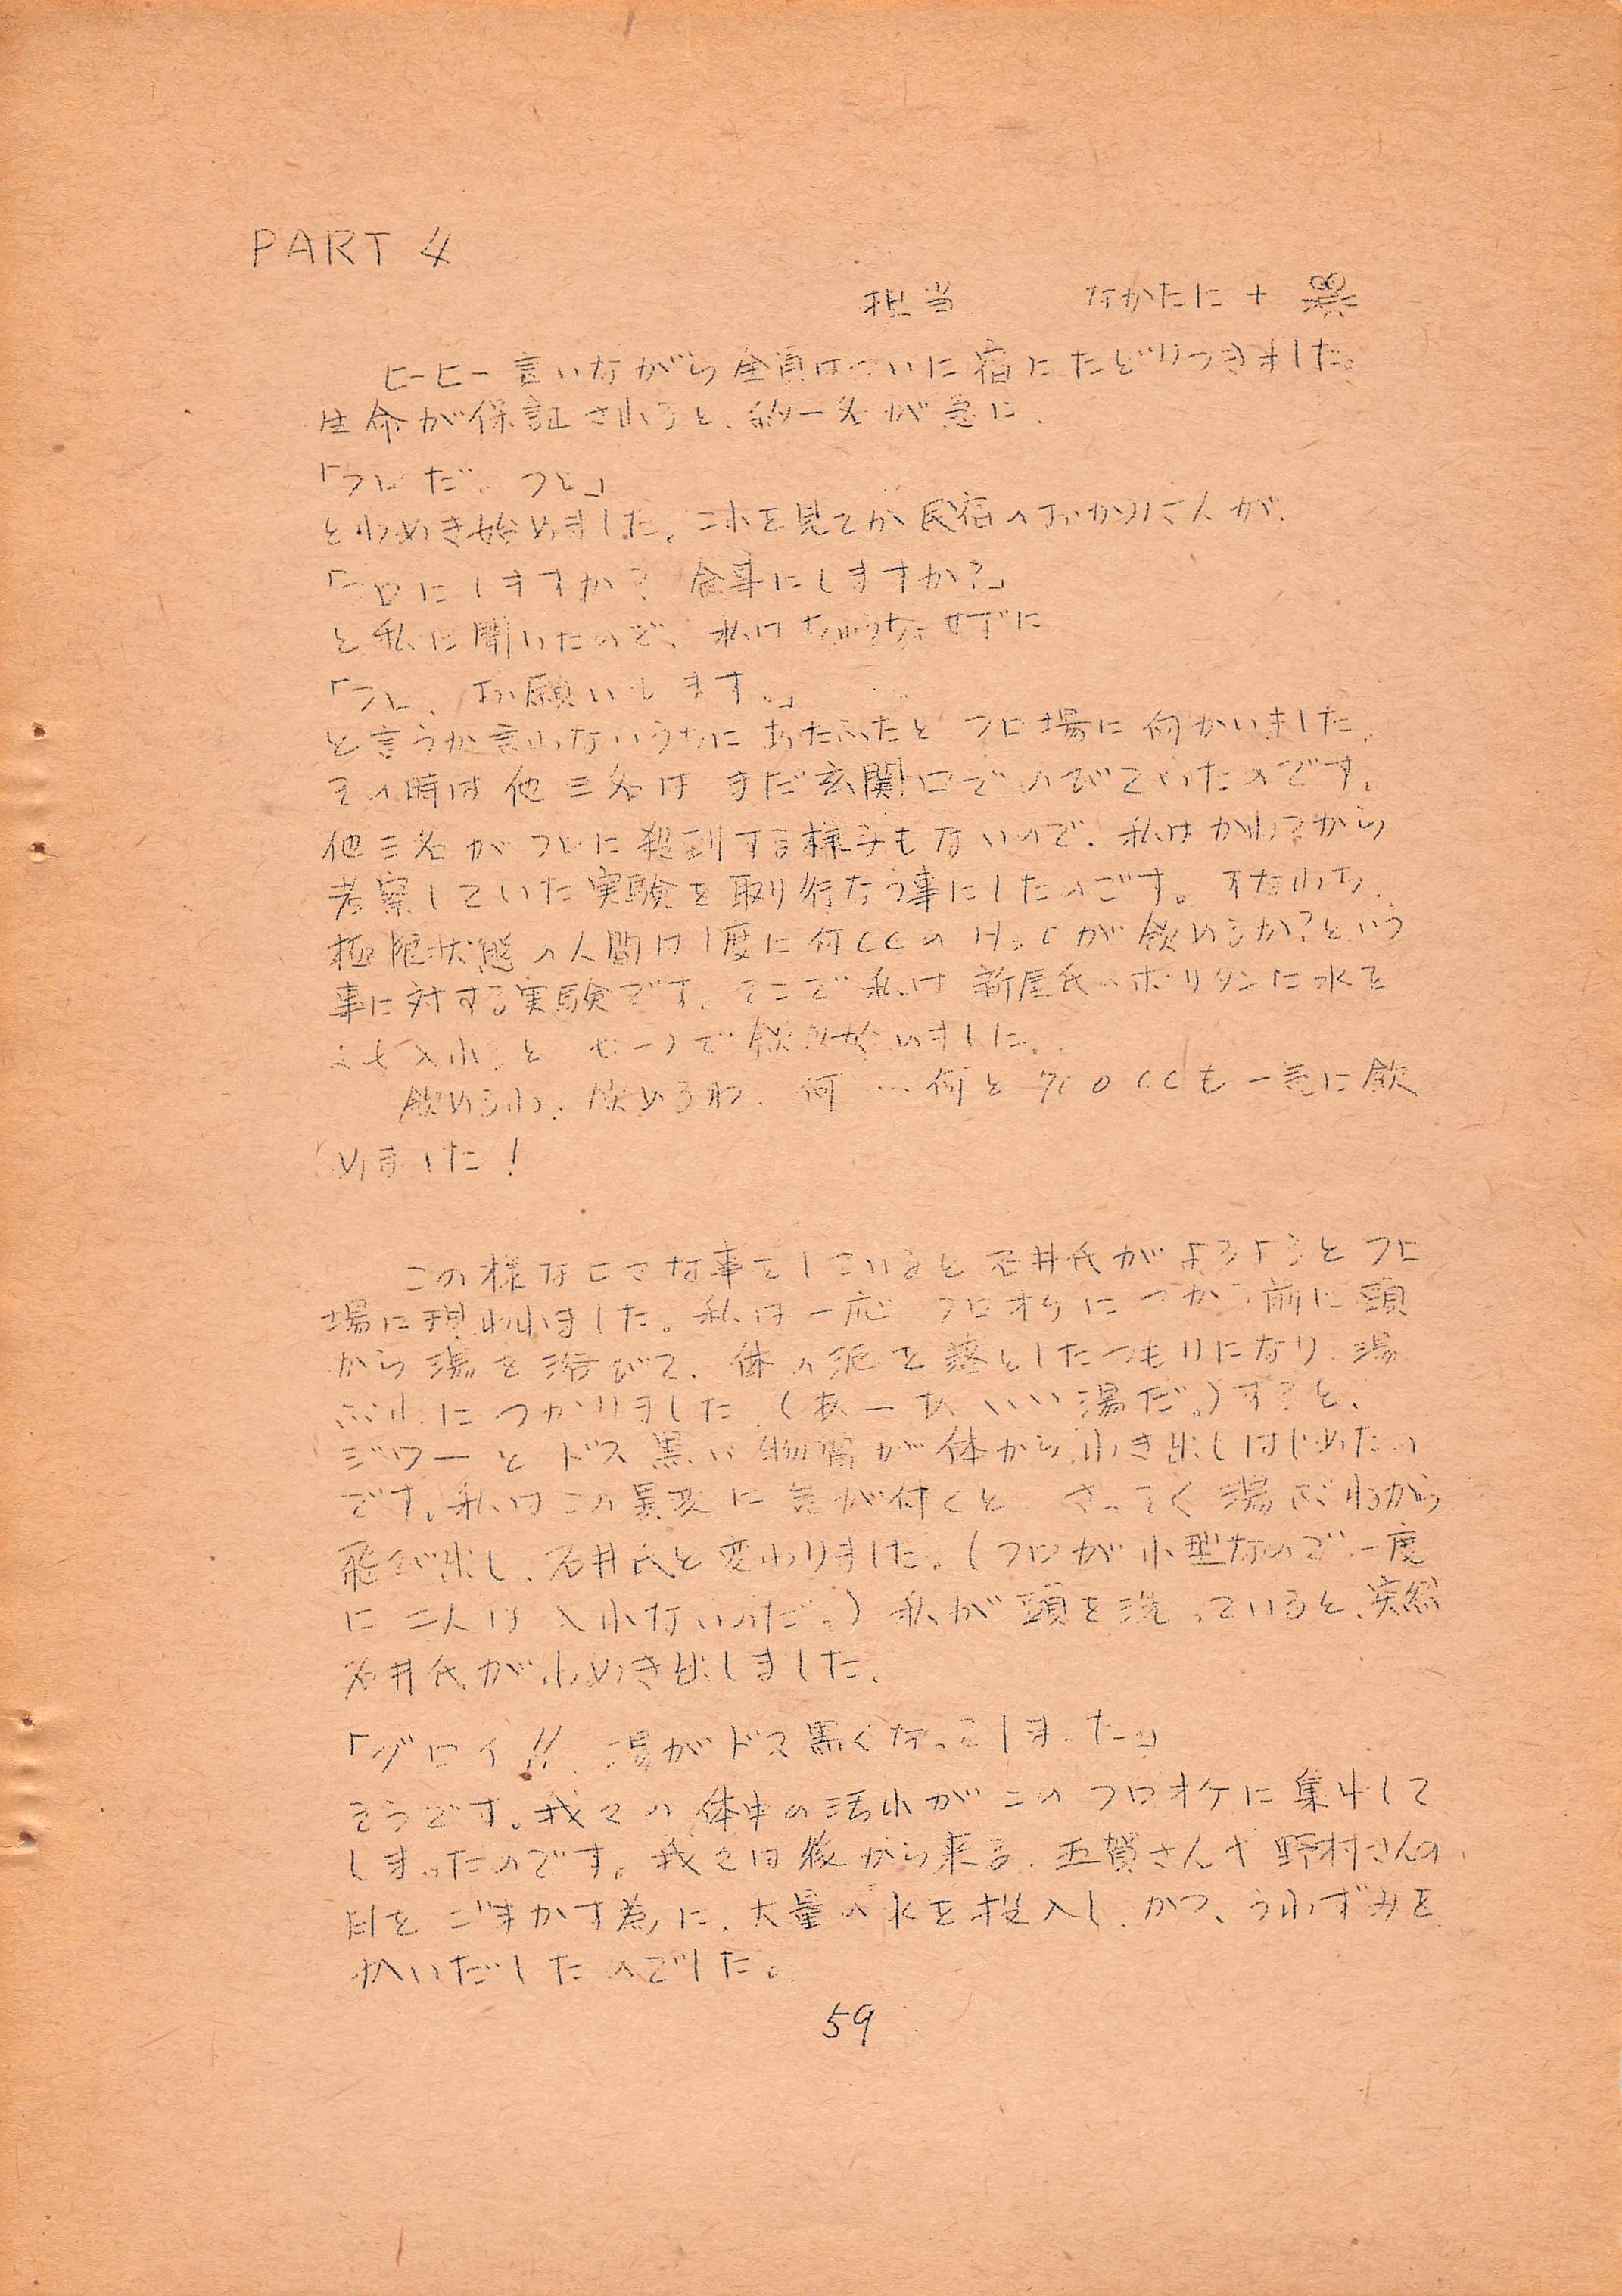 PART 4
担当 なかたに +
ヒーヒー言いながら全員はついに宿にたどりつきました。
生命が保証されると、約一名が急に、
「フロだ、フロ」
とわめき始めました。これを見てか民宿のおかみさんが、
「フロにしますか? 食事にしますか?」
と私に聞いたので、私はちゅうちょせずに
「フロ、お願いします。」
と言うか言わないうちにあたふたとフロ場に向かいました。
その時は他三名はまだ玄関口でのびていたのです。
他三名がフロに殺到する様子もないので、私はかねてから
考察していた実験を取り行なう事にしたのです。すなわち、
極限状態の人間は1度に何CCのH₂Oが飲めるか?という
事に対する実験です。そこで私は新屋氏のポリタンに水を
入れると せーので飲み始めました。
飲めるわ、飲めるわ、何…何と CCも一気に飲
めました!
この様な な事をしていると石井氏がよろよろとフロ
場に現われました。私は一応フロオケにつかる前に頭
から湯を浴びて、体の泥を落としたつもりになり、湯
ぶねにつかりました。(あーあ、いい湯だ。)すると、
ジワーとドス黒い物質が体からふき出しはじめたの
です。私はこの異変に気が付くと さっそく湯ぶねから
飛び出し、石井氏と変わりました。(フロが小型なので一度
に二人は入れないのだ。)私が頭を洗っていると、突然
石井氏がわめき出しました。
「グロイ!! 湯がドス黒くなってしまった」
そうです。我々の体中の汚れがこのフロオケに集中して
しまったのです。我々は後から来る、五賀さんや野村さんの
目をごまかす為に、大量の水を投入し、かつ、うわずみを
かいだしたのでした。
59